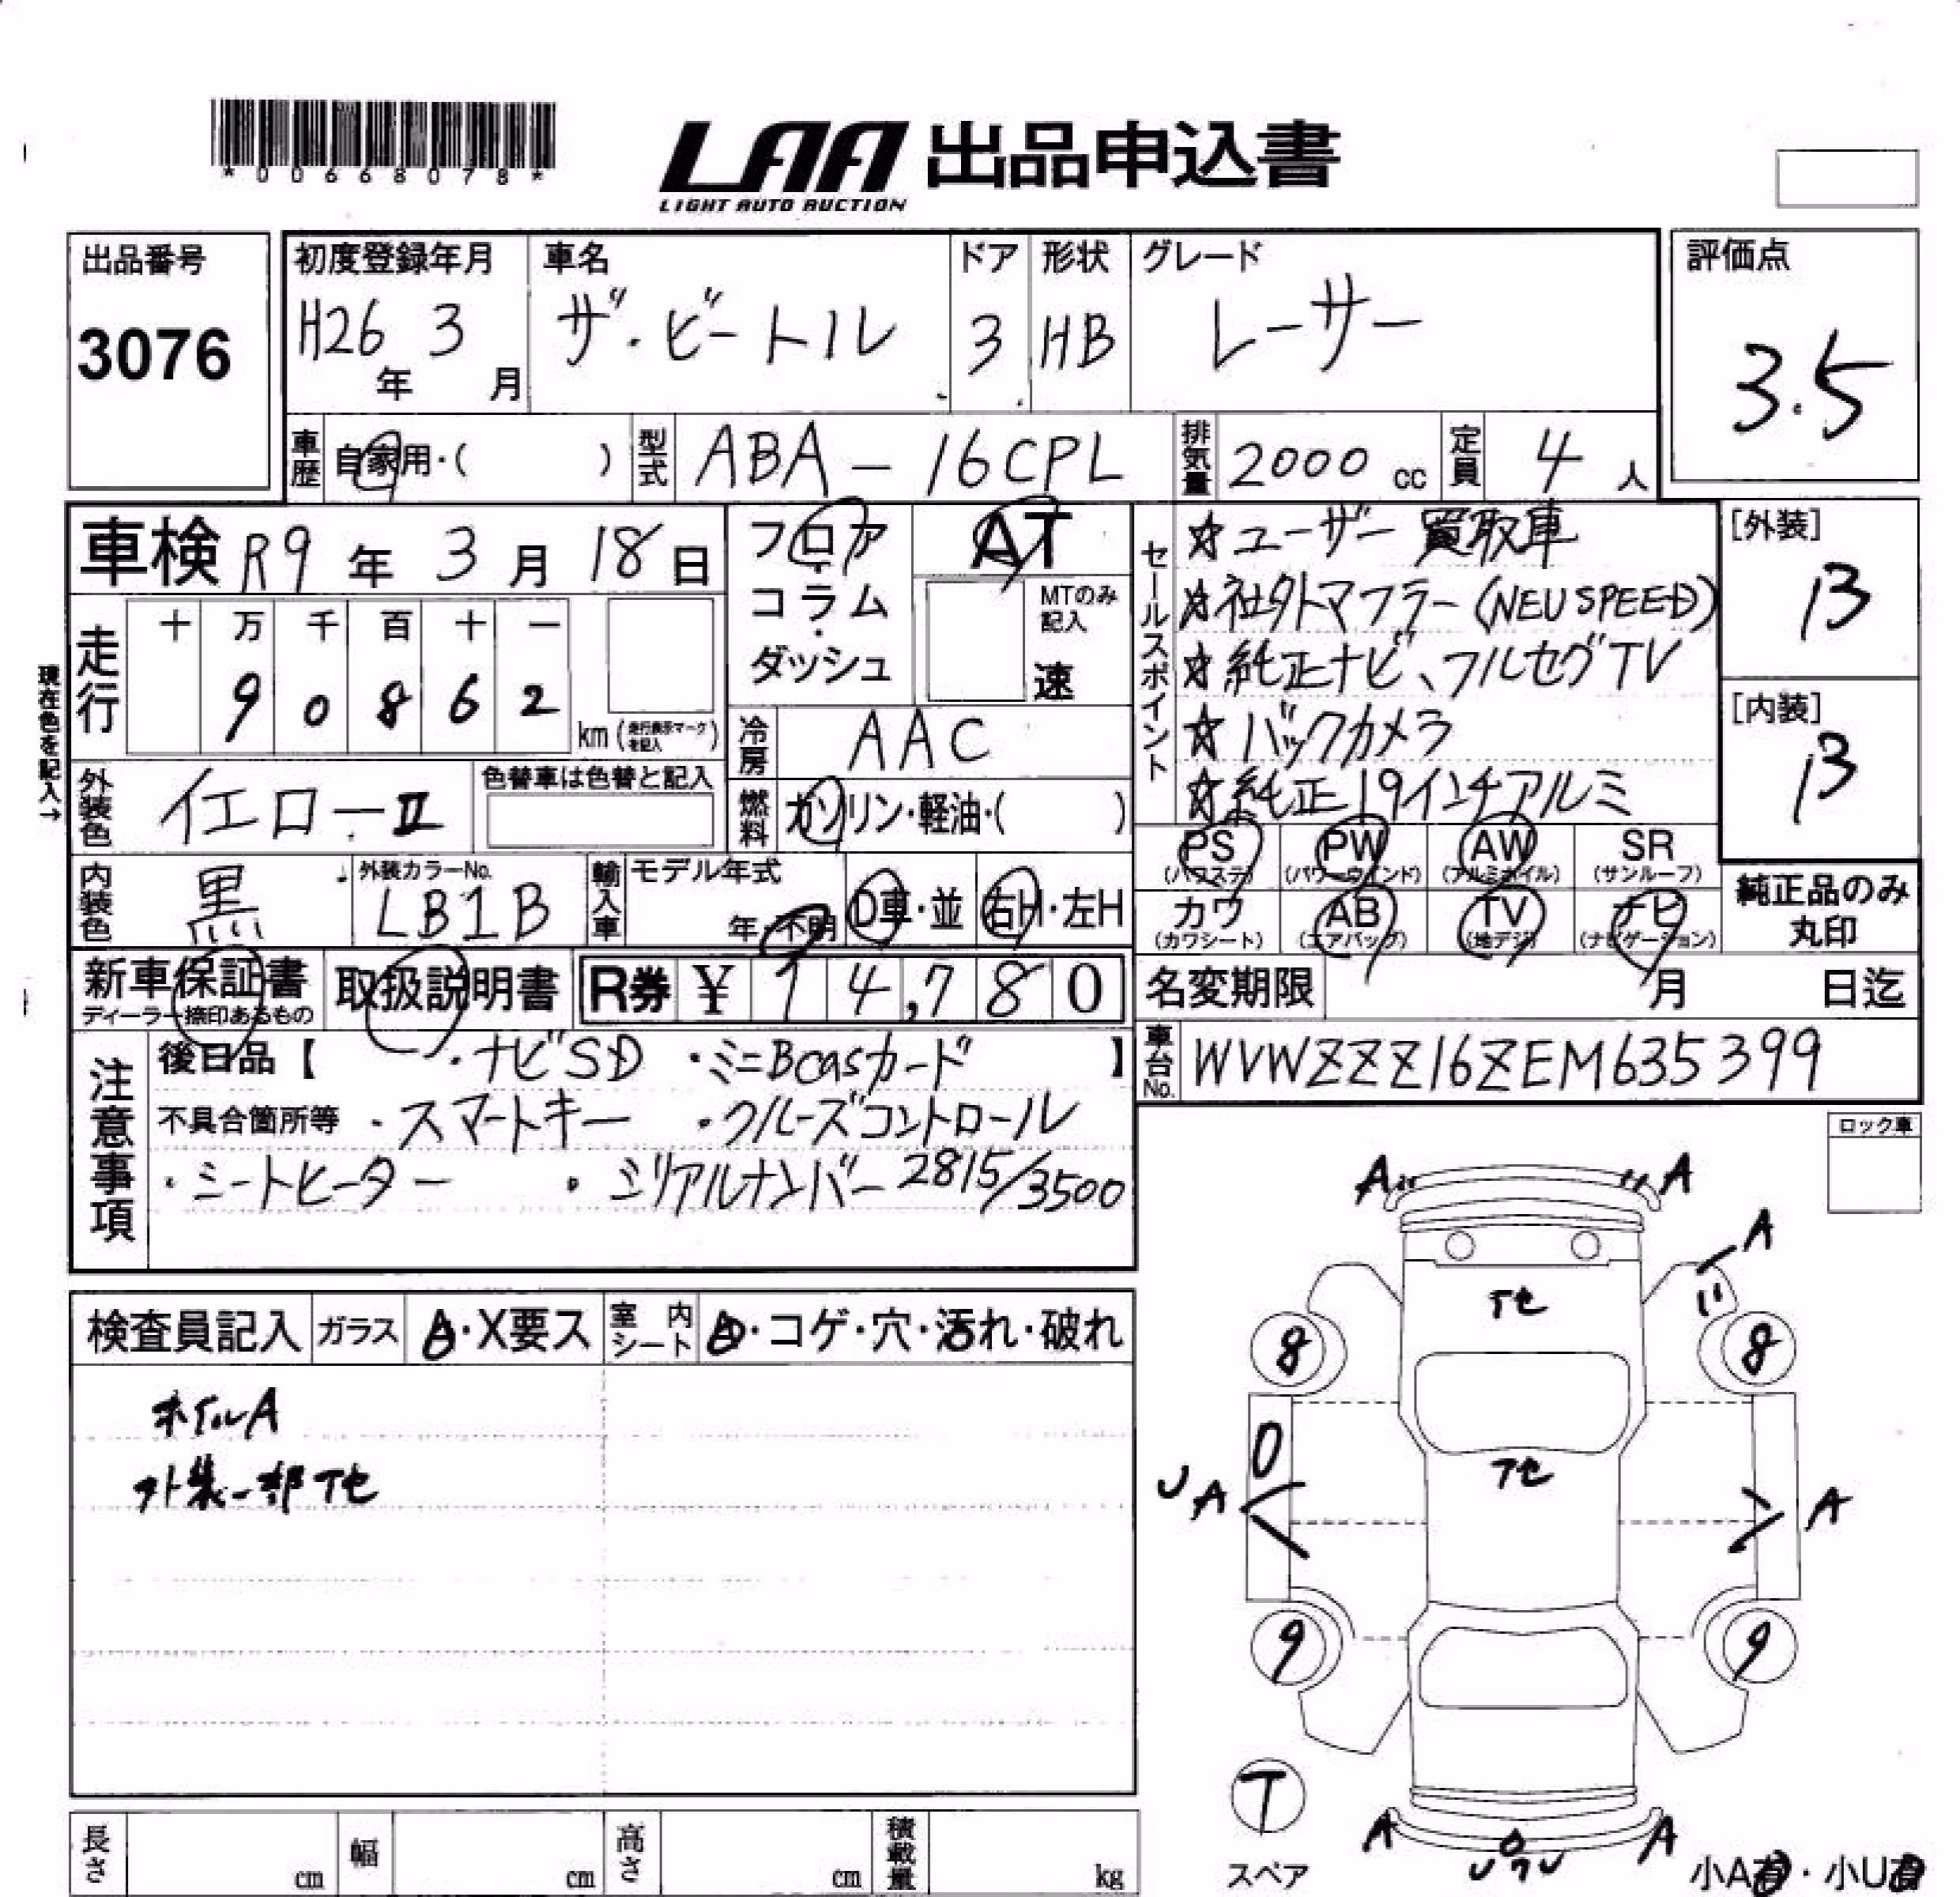 *00668078*
LAA 出品申込書
LIGHT AUTO AUCTION
出品番号
3076
初度登録年月
H26年 3月
車名
ザ・ビートル
ドア
3
形状
HB
グレード
レーサー
評価点
3.5
車歴 自家用・( )
型式 ABA-16CPL
排気量 2000 cc
定員 4 人
車検 R9年 3月 18日
フロア・コラム・ダッシュ
AT
MTのみ記入
速
セールスポイント
☆ユーザー買取車
☆社外マフラー(NEUSPEED)
☆純正ナビ、フルセグTV
☆バックカメラ
☆純正19インチアルミ
[外装]
B
[内装]
B
現在色を記入→
走行
十 万 千 百 十 一
9 0 8 6 2
km(走行表示マークを記入)
冷房 AAC
外装色 イエローⅡ
色替車は色替と記入
燃料 ガソリン・軽油・( )
内装色 黒
↓外装カラーNo.
LB1B
輸入車
モデル年式
年・不明
D車・並
右H・左H
PS (パワステ)
PW (パワーウインド)
AW (アルミホイル)
SR (サンルーフ)
カワ (カワシート)
AB (エアバッグ)
TV (地デジ)
ナビ (ナビゲーション)
純正品のみ丸印
新車保証書
ディーラー捺印あるもの
取扱説明書
R券 ¥ 14,780
名変期限 月 日迄
車台No. WVWZZZ16ZEM635399
注意事項
後日品【 ・ナビSD ・ミニBcasカード 】
不具合箇所等 ・スマートキー ・クルーズコントロール
・シートヒーター ・シリアルナンバー 2815/3500
ロック車
検査員記入
ガラス A・X要ス
室内シート
・コゲ・穴・汚れ・破れ
ホイルA
外装一部アセ
A A
A
アセ
8 8
アセ
UA A
9 9
T
スペア
A A
小A有・小U有
長さ cm
幅 cm
高さ cm
積載量 kg